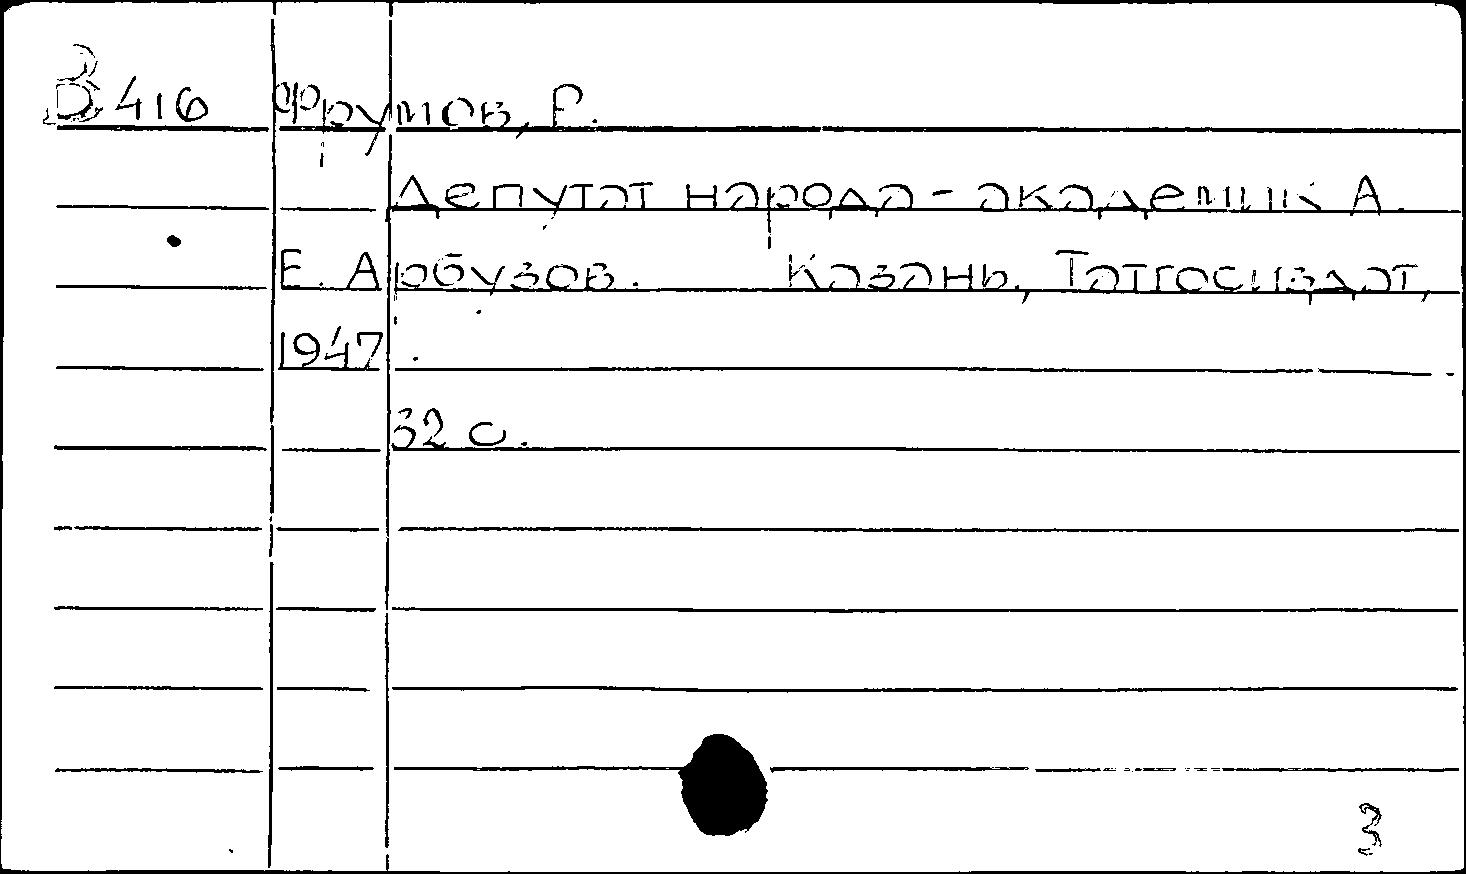 В 416 Фрумов, Р.
Депутат народа - академик А.
Е. Арбузов. Казань, Татгосиздат,
1947.
32 с.
3